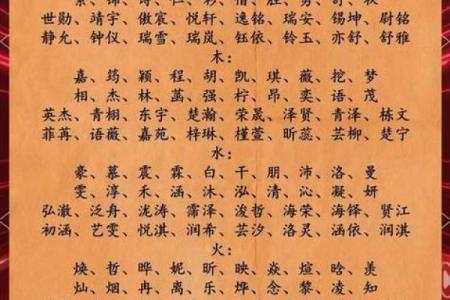 世勋、靖宇、傲宸、悦轩、逸铭、瑞安、锡坤、尉铭
静允、钟仪、瑞雪、瑞岚、钰依、铃玉、亦舒、舒雅
木：
嘉、筠、颖、程、胡、凯、琪、薇、挖、梦
相、杰、林、菡、强、柠、昂、奕、语、茂
英杰、青栩、东宇、楚瀚、荣晟、泽贤、青泽、栋文
菲苒、语薇、嘉苑、梓琳、槿萱、昕蕊、芸柳、楚宁
水：
豪、慕、震、霖、白、干、朋、沛、洛、曼
雯、淳、禾、涵、沐、泓、清、沁、凝、妍
弘澈、泛舟、泷涛、霈泽、浚哲、海荣、海铎、贤江
初涵、艺雯、悦淇、润希、芸汐、洛灵、涵依、润淇
火：
焕、哲、晔、妮、昕、映、焱、煊、晗、羡
灿、烟、冉、离、乐、烨、念、黎、凌、知